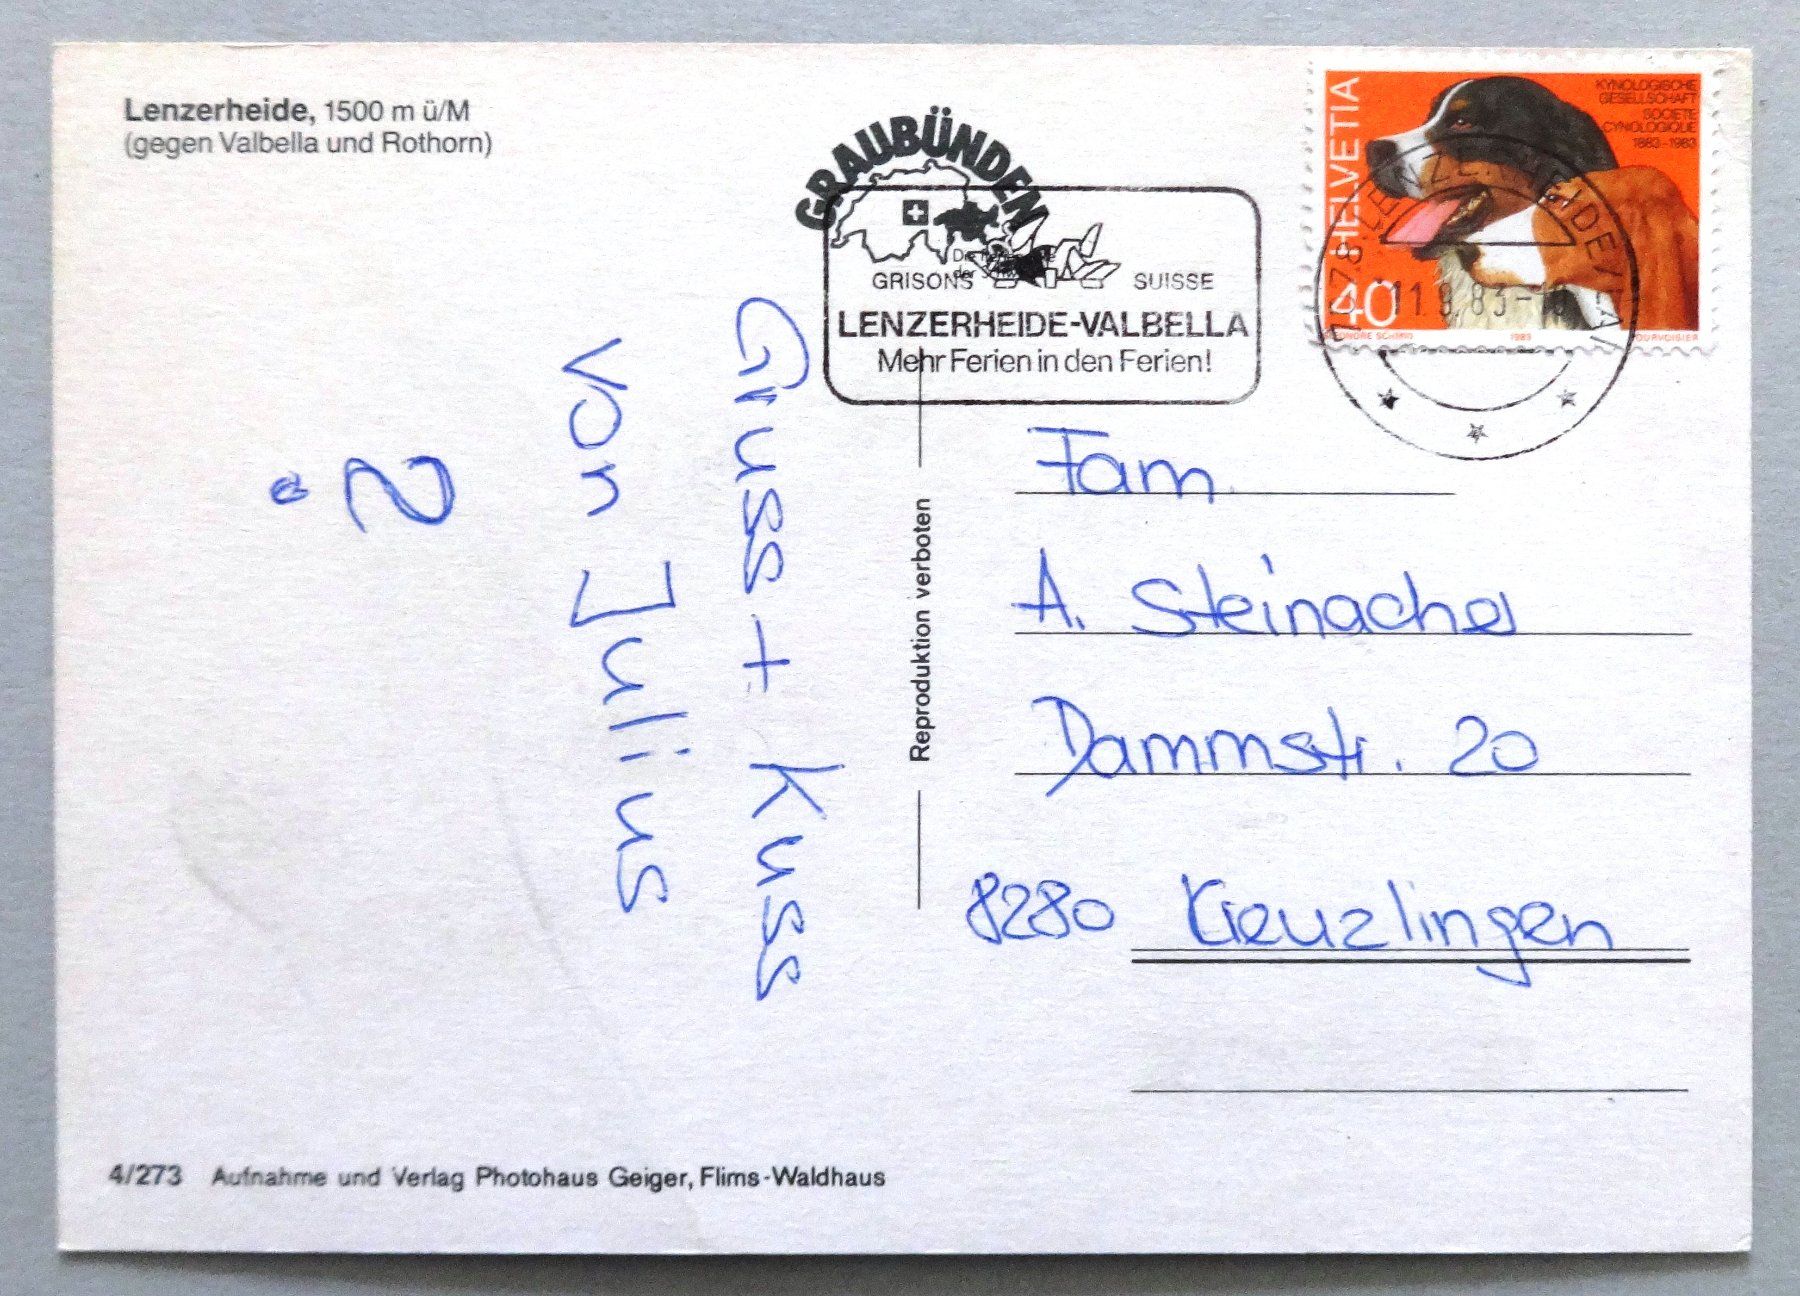 Lenzerheide, 1500 m ü/M
(gegen Valbella und Rothorn)
Gruss + Kuss
von Julius
?
GRAUBÜNDEN
GRISONS SUISSE
LENZERHEIDE-VALBELLA
Mehr Ferien in den Ferien!
HELVETIA
KYNOLOGISCHE
GESELLSCHAFT
SOCIETE
CYNOLOGIQUE
1883-1983
40
1983
COURVOISIER
7078 LENZERHEIDE/LAI
11.9.83-18
Reproduktion verboten
Fam.
A. Steinacher
Dammstr. 20
8280 Kreuzlingen
4/273 Aufnahme und Verlag Photohaus Geiger, Flims-Waldhaus